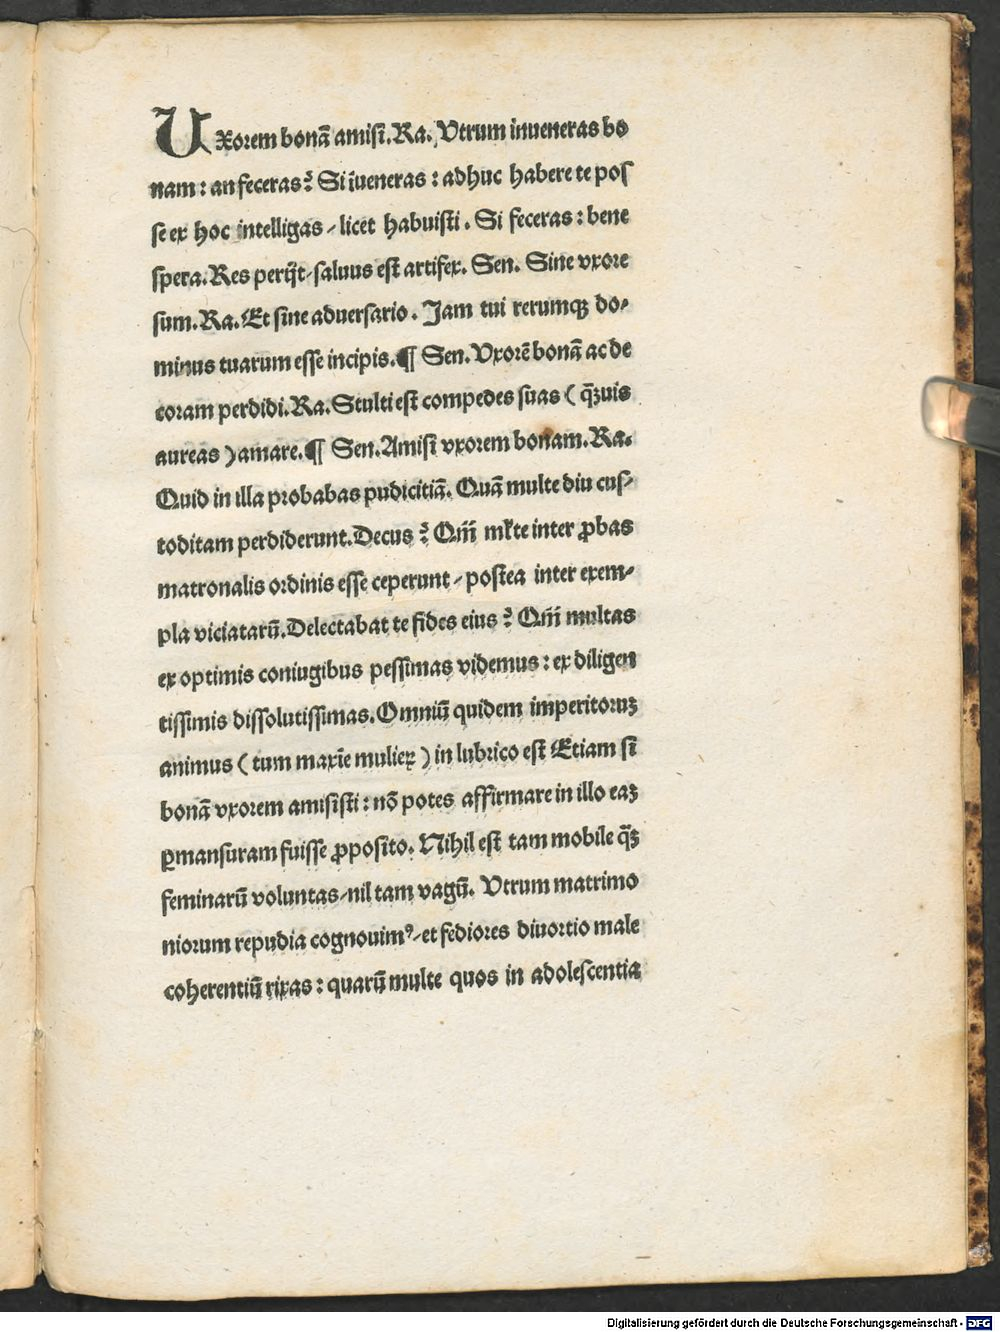 Uxorem bonā amisi. Ra. Vtrum inueneras bo
nam: an feceras? Si īueneras: adhuc habere te pos
se ex hoc intelligas / licet habuisti. Si feceras: bene
spera. Res perijt / saluus est artifex. Sen. Sine vxore
sum. Ra. Et sine aduersario. Jam tui rerumqȝ do/
minus tuarum esse incipis. ¶ Sen. Vxorē bonā ac de
coram perdidi. Ra. Stulti est compedes suas (qȝuis
aureas) amare. ¶ Sen. Amisi vxorem bonam. Ra.
Quid in illa probabas pudicitiā. Quā multe diu cus/
toditam perdiderunt. Decus? Qm̄ ml̄te inter ꝓbas
matronalis ordinis esse ceperunt / postea inter exem/
pla viciatarū. Delectabat te fides eius? Qm̄ multas
ex optimis coniugibus pessimas videmus: ex diligen
tissimis dissolutissimas. Omniū quidem imperitoruȝ
animus (tum maxīe mulieꝝ) in lubrico est Etiam si
bonā vxorem amisisti: nō potes affirmare in illo eaȝ
ꝑmansuram fuisse ꝓposito. Nihil est tam mobile qȝ̄
feminarū voluntas / nil tam vagū. Vtrum matrimo
niorum repudia cognouimꝰ / et fediores diuortio male
coherentiū rixas: quarū multe quos in adolescentia
Digitalisierung gefördert durch die Deutsche Forschungsgemeinschaft - DFG